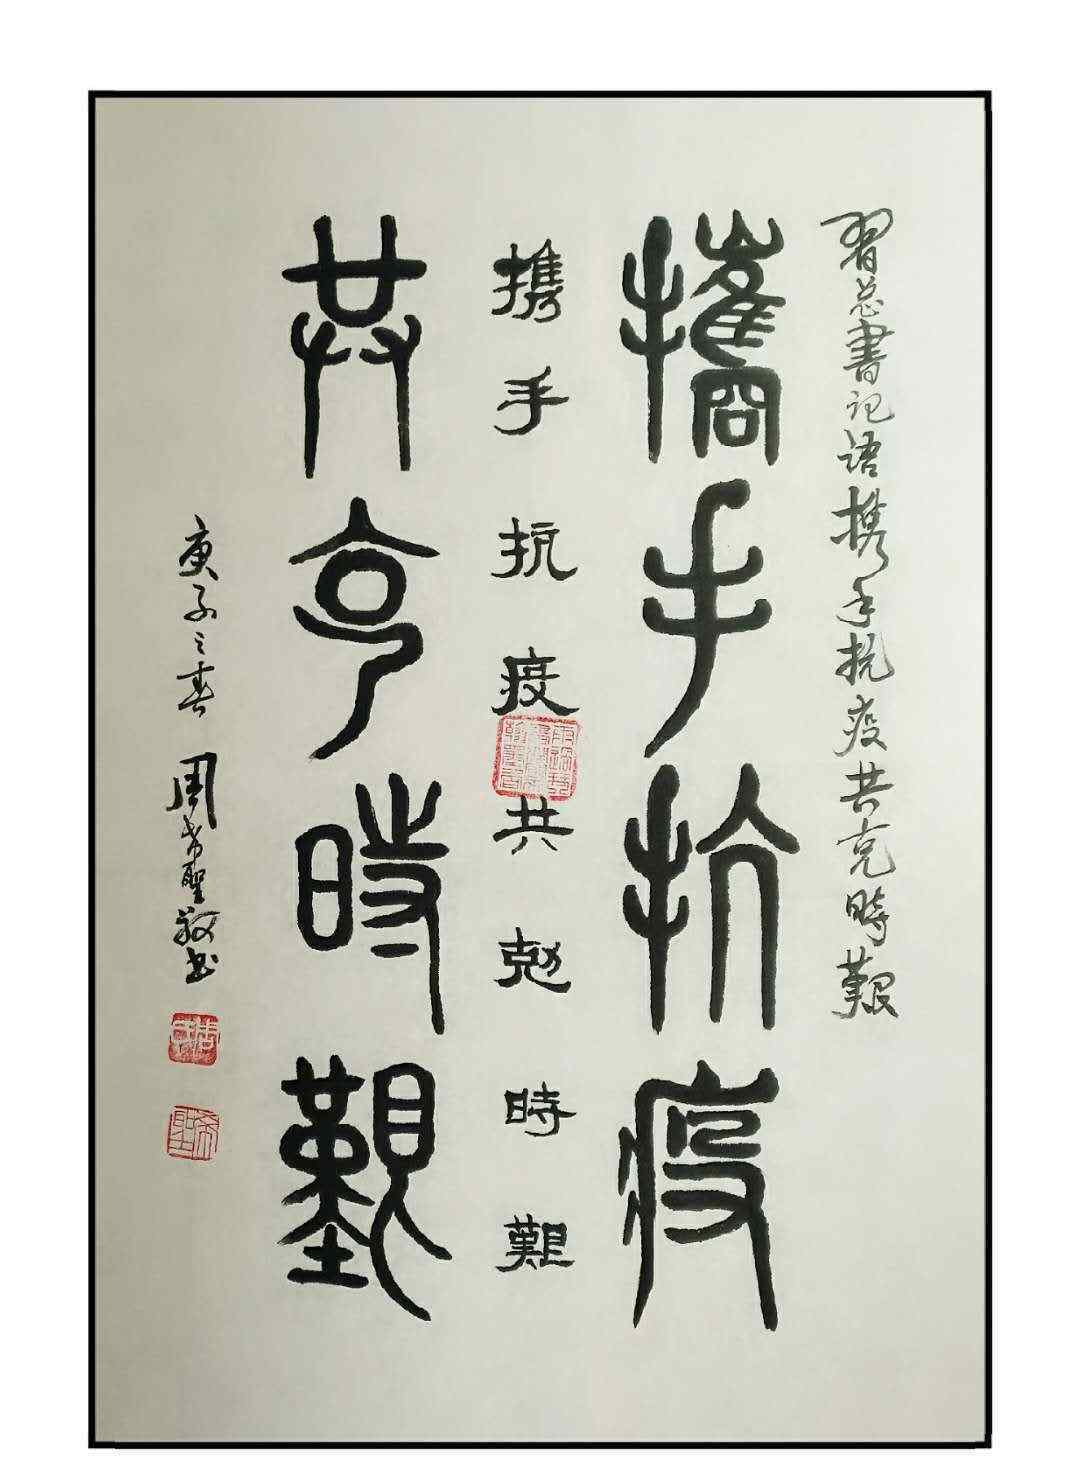 習总書记语携手抗疫共克時艱
攜手抗疫
携手抗疫共剋時艱
共克時艱
庚子之春 周希聖敬书